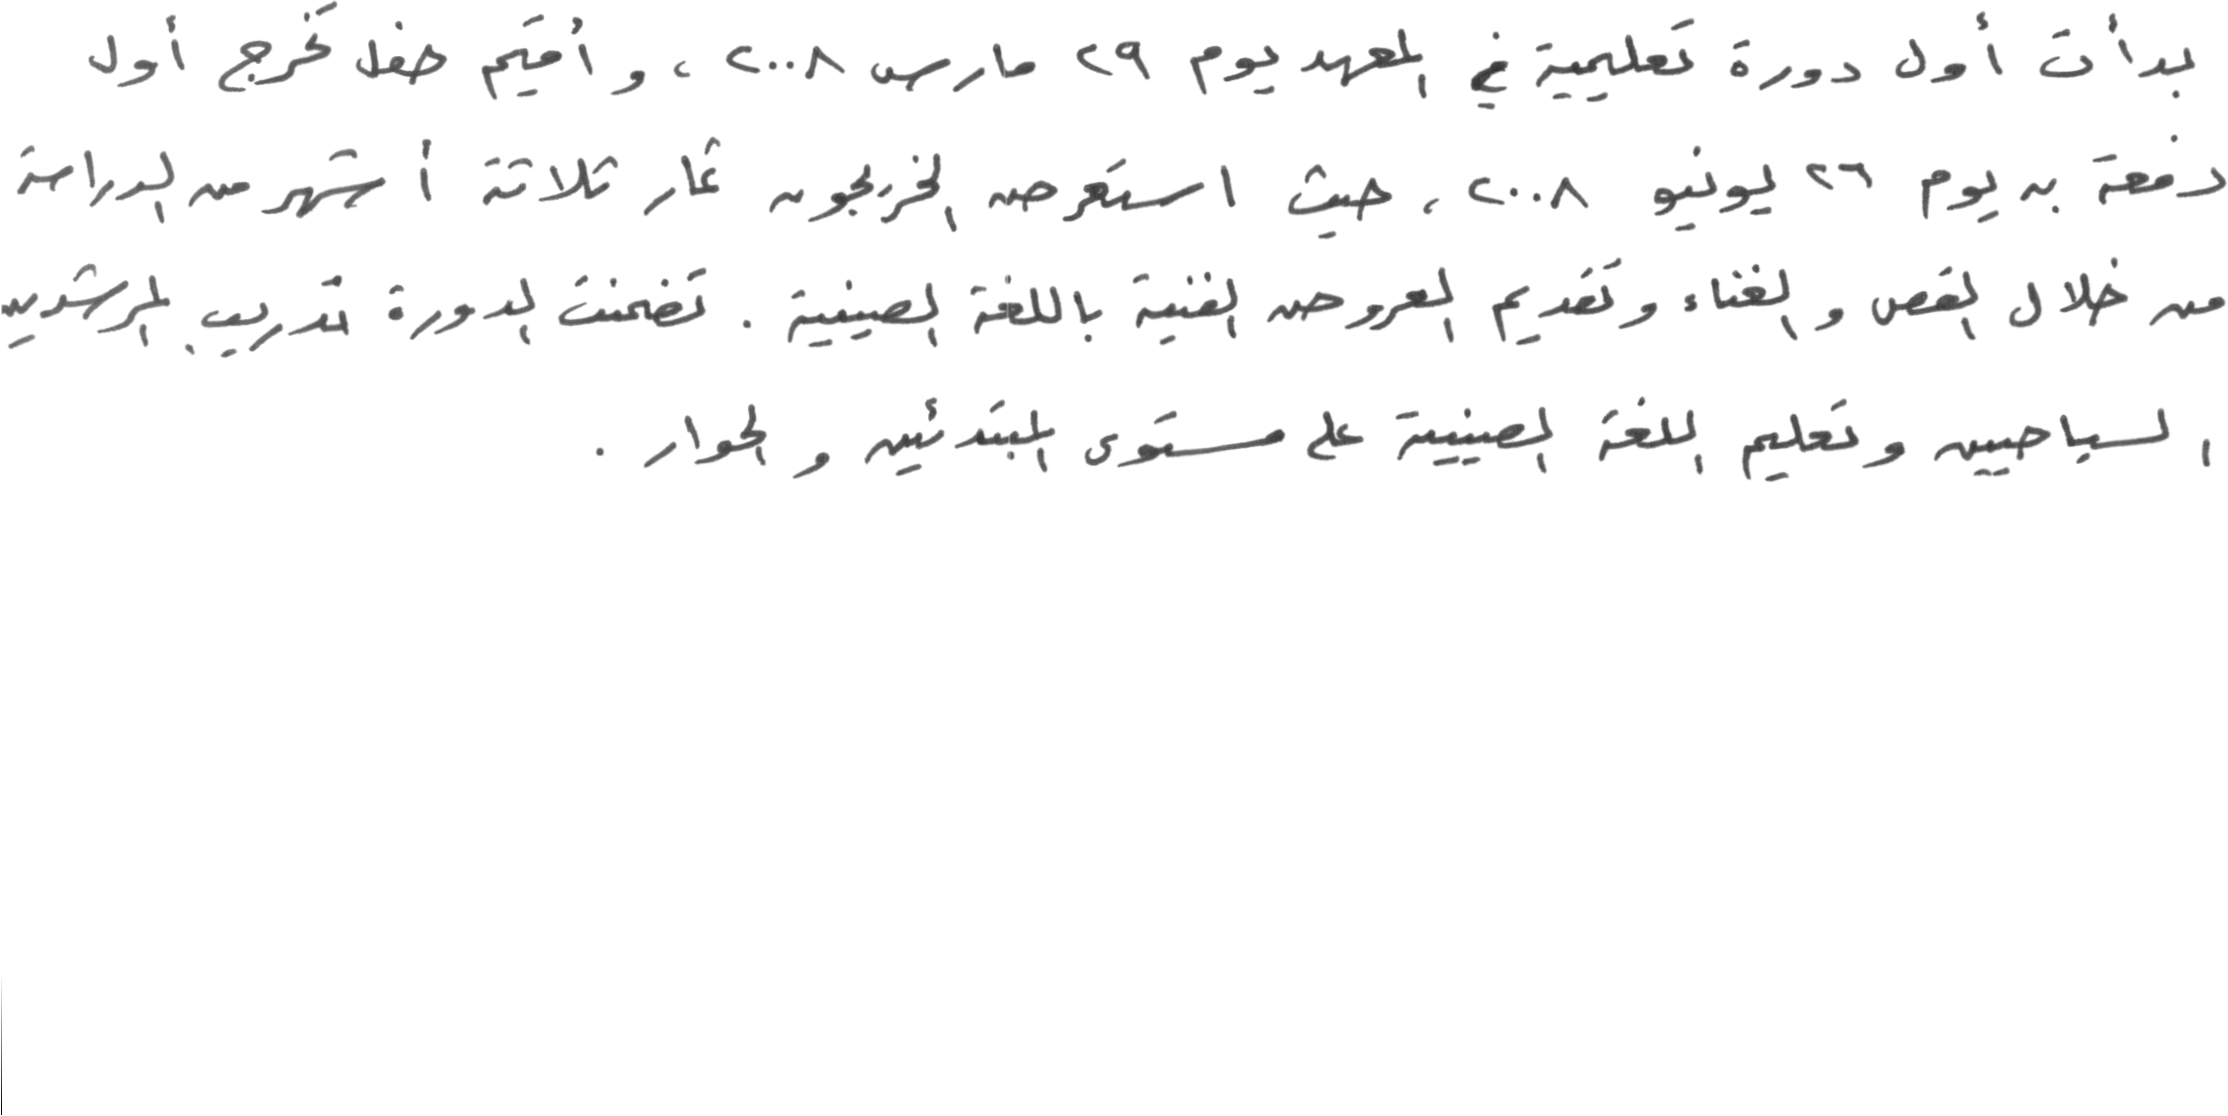 بدأت أول دورة تعليمية في المعهد يوم ٢٩ مارس ٢٠٠٨ ، و أقيم حفل تخرج أول
دفعة به يوم ٢٦ يونيو ٢٠٠٨ ، حيث استعرض الخريجون ثمار ثلاثة أشهر من الدراسة
من خلال القص و الغناء و تقديم العروض الفنية باللغة الصينية . تضمنت الدورة تدريب المرشدين
السياحيين و تعليم اللغة الصينية على مستوى المبتدئين و الحوار .